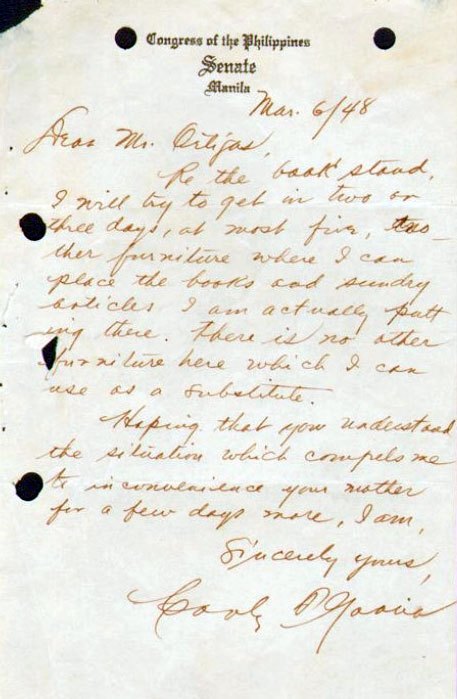 Congress of the Philippines
Senate
Manila
Mar. 6/48
Dear Mr.
Re the book stand,
I will try to get in two or
three days, at most five, ano-
ther furniture where I can
place the books and sundry
articles I am actually putt
ing there. There is no other
furniture here which I can
use as a substitute.
Hoping that you understand
the situation which compels me
to inconvenience your mother
for a few days more, I am,
Sincerely yours,
Carlos P Garcia